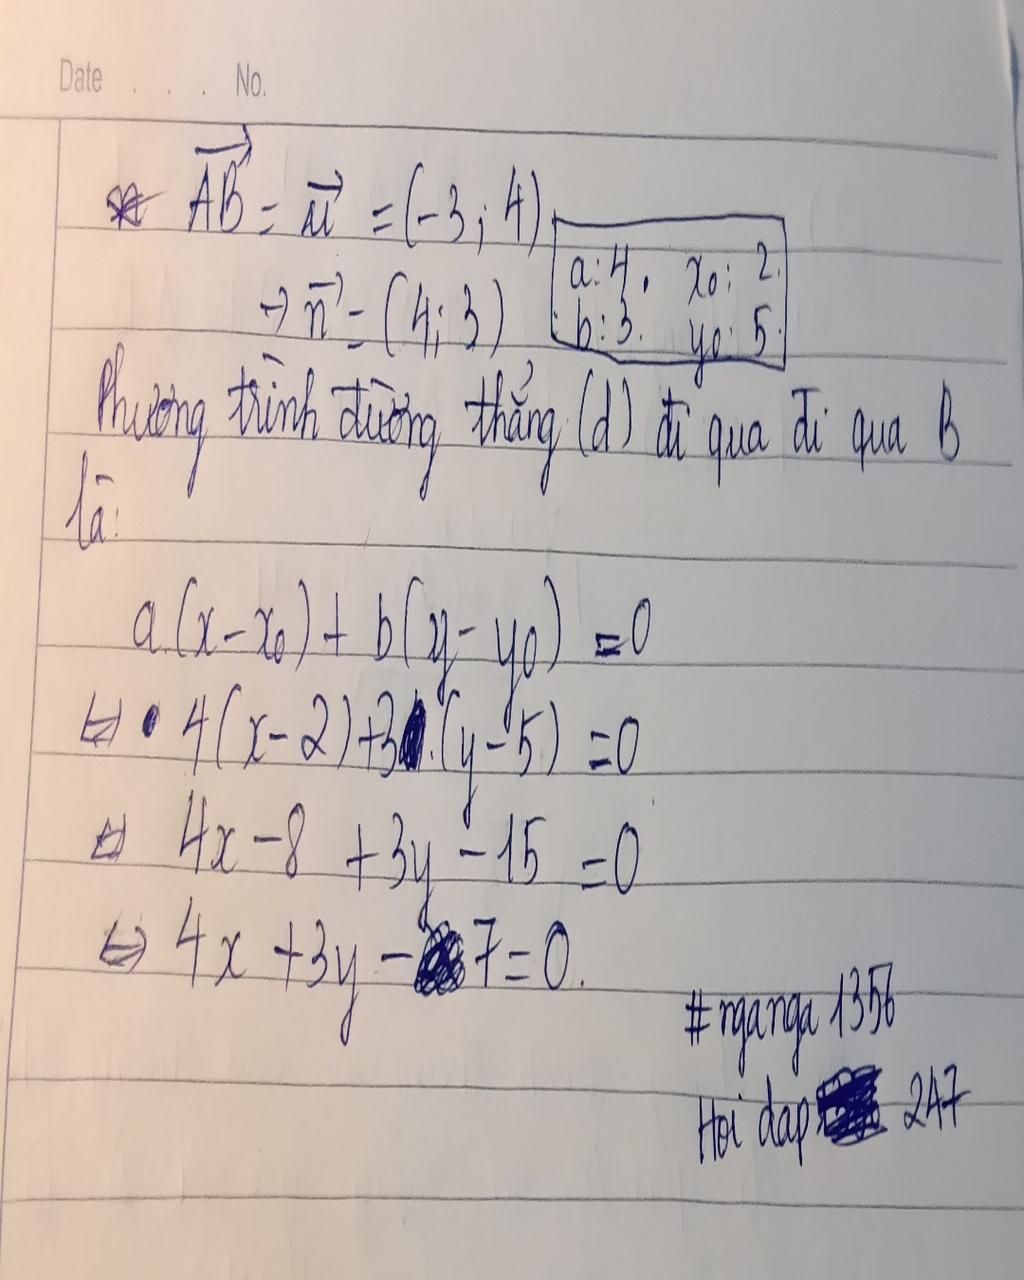 Date . . . No.
* $\overrightarrow{AB} = \vec{u} = (-3; 4)$
→ $\vec{n} = (4; 3)$
a: 4. x₀: 2.
b: 3. y₀: 5.
Phương trình đường thẳng (d) đi qua đi qua B
là:
a.(x - x₀) + b(y - y₀) = 0
⇔ • 4(x - 2) + 3.(y - 5) = 0
⇔ 4x - 8 + 3y - 15 = 0
⇔ 4x + 3y - 7 = 0.
# nganga 1356
Hoi dap 247